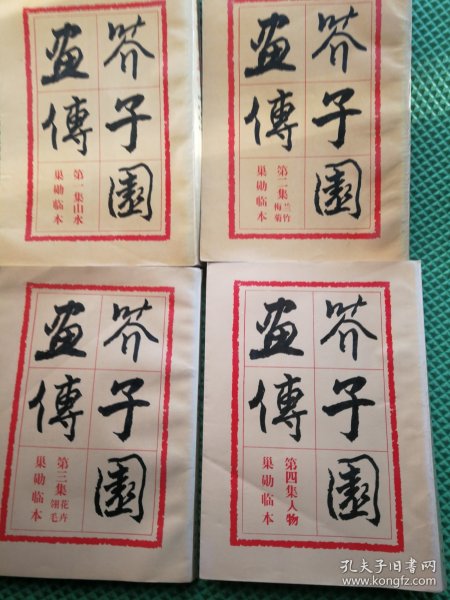 芥子園
畫傳
第一集山水
巢勋临本
芥子園
畫傳
第二集兰竹梅菊
巢勋临本
芥子園
畫傳
第三集花卉翎毛
巢勋临本
芥子園
畫傳
第四集人物
巢勋临本
孔夫子旧书网
www.kongfz.com